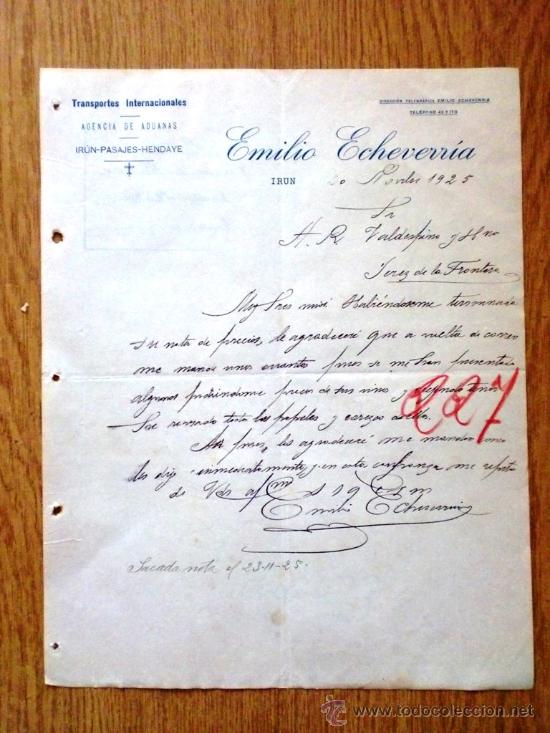 Transportes Internacionales
AGENCIA DE ADUANAS
IRÚN-PASAJES-HENDAYE
DIRECCIÓN TELEGRÁFICA EMILIO ECHEVERRIA
TELÉFONO
Emilio Echeverría
IRUN 20 Novbre 1925
Sr
A. R. Valdespino y Hno
Jerez de la Frontera
Muy Sres mios Habiéndoseme terminado
su nota de precios, le agradeceré que a vuelta de correo
me mande unos cuantos pues se me han presentado
algunos pidiendome precios de sus vinos y
los papeles y
Asi pues, les agradeceré me manden
les dije inmediatamente, y en esta confianza me repito
de Vds
Emilio Echeverria
227
Sacada nota el 23-11-25.
www.todocoleccion.net